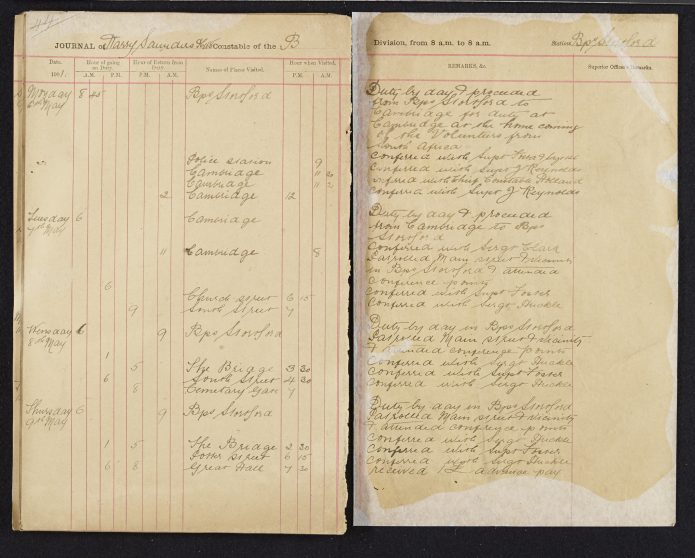 44
JOURNAL of Harry Saunders Constable of the B
Date. 1901.
Hour of going on Duty. A.M. P.M.
Hour of Return from Duty. P.M. A.M.
Names of Places Visited.
Hour when Visited. P.M. A.M.
Monday 8 45 Bps Stortford
6th May
Police Station 9
Cambridge 11 20
Cambridge 11
2 Cambridge 12
Tuesday 6 Cambridge
7th May
11 Cambridge 8
6 Church Street 6 15
9 South Street 7
Wensday 6 9 Bps Stortford
8th May
1 5 The Bridge 3 30
6 South Street 4 30
8 Cemetary Gate 7
Thursday 6 9 Bps Stortford
9th May
1 5 The Bridge 2 30
Potter Street 6 15
6 8 Great Hall 7 30
Division, from 8 a.m. to 8 a.m. Station Bps Stortford
REMARKS, &c. Superior Officers Remarks.
Duty by day & proceeded
from Bps Stortford to
Cambridge for duty at
Cambridge at the home coming
of the Volunters from
South Africa
Conferred with Supt Foster
Conferred with Supt J Reynolds
Conferred with Chief Constable
Conferred with Supt J Reynolds
Duty by day & proceeded
from Cambridge to Bps
Stortford
Conferred with Sergt Clark
Patrolled Main street & vicinity
in Bps Stortford & attended
conference points
Conferred with Supt Foster
Conferred with Sergt Huckle
Duty by day in Bps Stortford
Patrolled Main street & vicinity
& attended conference points
Conferred with Sergt Huckle
Conferred with Supt Foster
Conferred with Sergt Huckle
Duty by day in Bps Stortford
Patrolled Main street & vicinity
& attended conference points
Conferred with Sergt Huckle
Conferred with Supt Foster
Conferred with Sergt Huckle
received 1£ advance pay